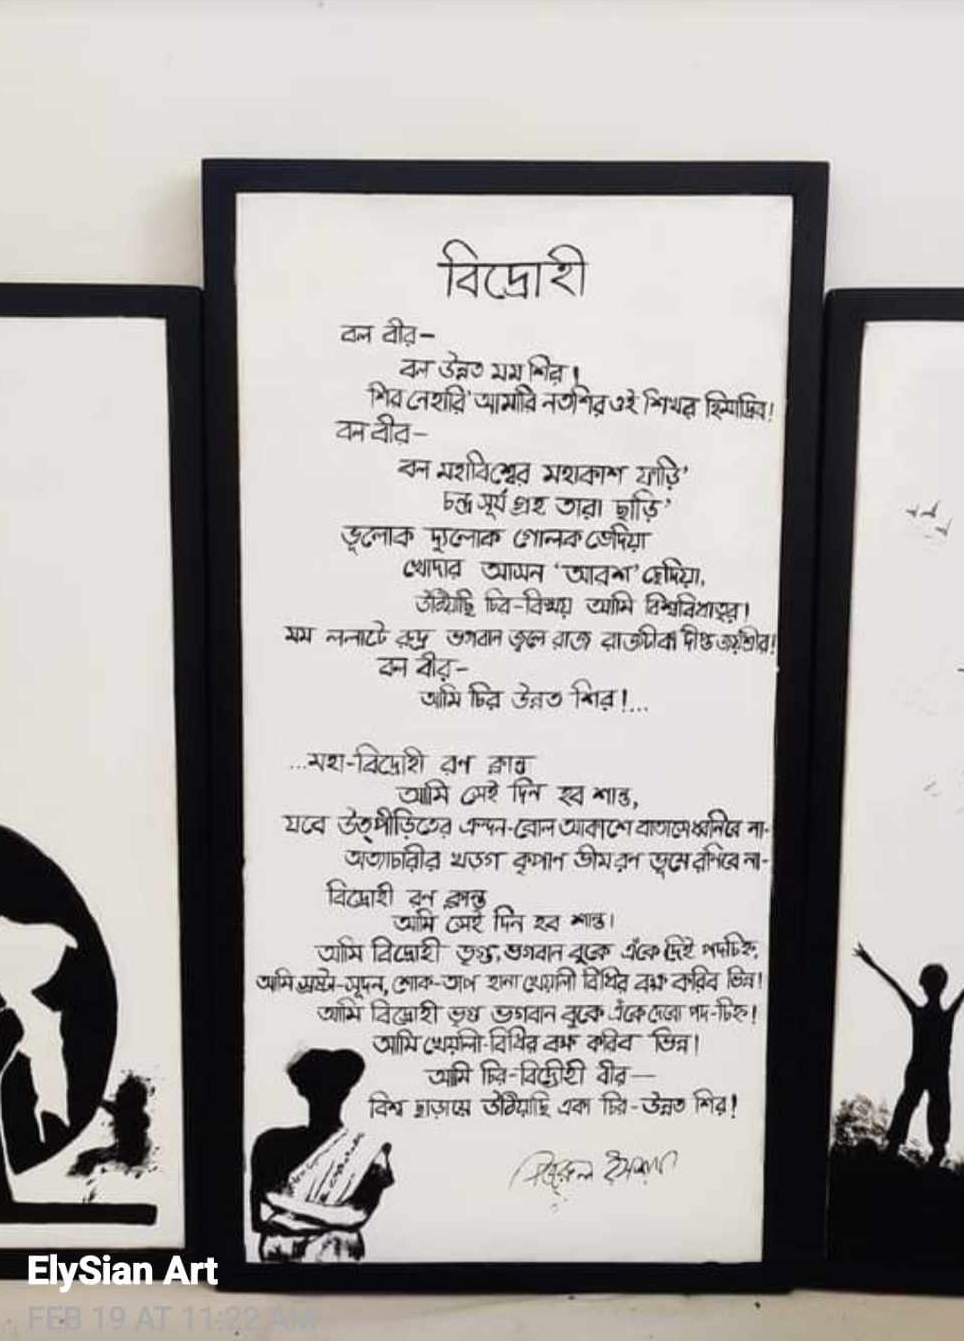 বিদ্রোহী
বল বীর-
বল উন্নত মম শির!
শির নেহারি' আমারি নতশির ওই শিখর হিমাদ্রির!
বল বীর-
বল মহাবিশ্বের মহাকাশ ফাড়ি'
চন্দ্র সূর্য গ্রহ তারা ছাড়ি'
ভূলোক দ্যুলোক গোলক ভেদিয়া
খোদার আসন 'আরশ' ছেদিয়া,
উঠিয়াছি চির-বিস্ময় আমি বিশ্ববিধাতৃর!
মম ললাটে রুদ্র ভগবান জ্বলে রাজ রাজটীকা দীপ্ত জয়শ্রীর!
বল বীর-
আমি চির উন্নত শির!...
...মহা-বিদ্রোহী রণ ক্লান্ত
আমি সেই দিন হব শান্ত,
যবে উত্পীড়িতের ক্রন্দন-রোল আকাশে বাতাসে ধ্বনিবে না-
অত্যাচারীর খড়গ কৃপাণ ভীম রণ ভূমে রণিবে না-
বিদ্রোহী রণ ক্লান্ত
আমি সেই দিন হব শান্ত।
আমি বিদ্রোহী ভৃগু, ভগবান বুকে এঁকে দিই পদচিহ্ন,
আমি স্রষ্টা-সূদন, শোক-তাপ হানা খেয়ালী বিধির বক্ষ করিব ভিন্ন!
আমি বিদ্রোহী ভৃগু ভগবান বুকে এঁকে দেবো পদ-চিহ্ন!
আমি খেয়ালী-বিধির বক্ষ করিব ভিন্ন!
আমি চির-বিদ্রোহী বীর—
বিশ্ব ছাড়ায়ে উঠিয়াছি একা চির-উন্নত শির!
ElySian Art
FEB 19 AT 11:22 AM